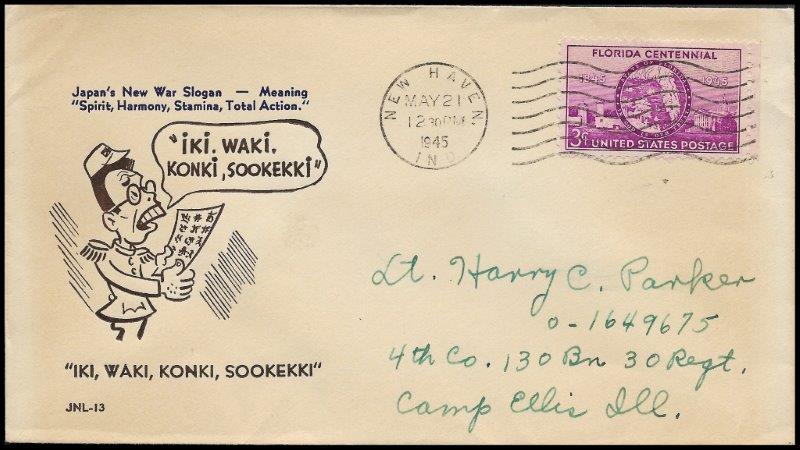 Japan's New War Slogan — Meaning
"Spirit, Harmony, Stamina, Total Action."
"IKI. WAKI.
KONKI, SOOKEKKI"
"IKI, WAKI, KONKI, SOOKEKKI"
JNL-13
NEW HAVEN
MAY 21
12 30 PM
1945
IND
FLORIDA CENTENNIAL
1845 1945
3¢ UNITED STATES POSTAGE
Lt. Harry C. Parker
O-1649675
4th Co. 130 Bn 30 Regt.
Camp Ellis Ill.